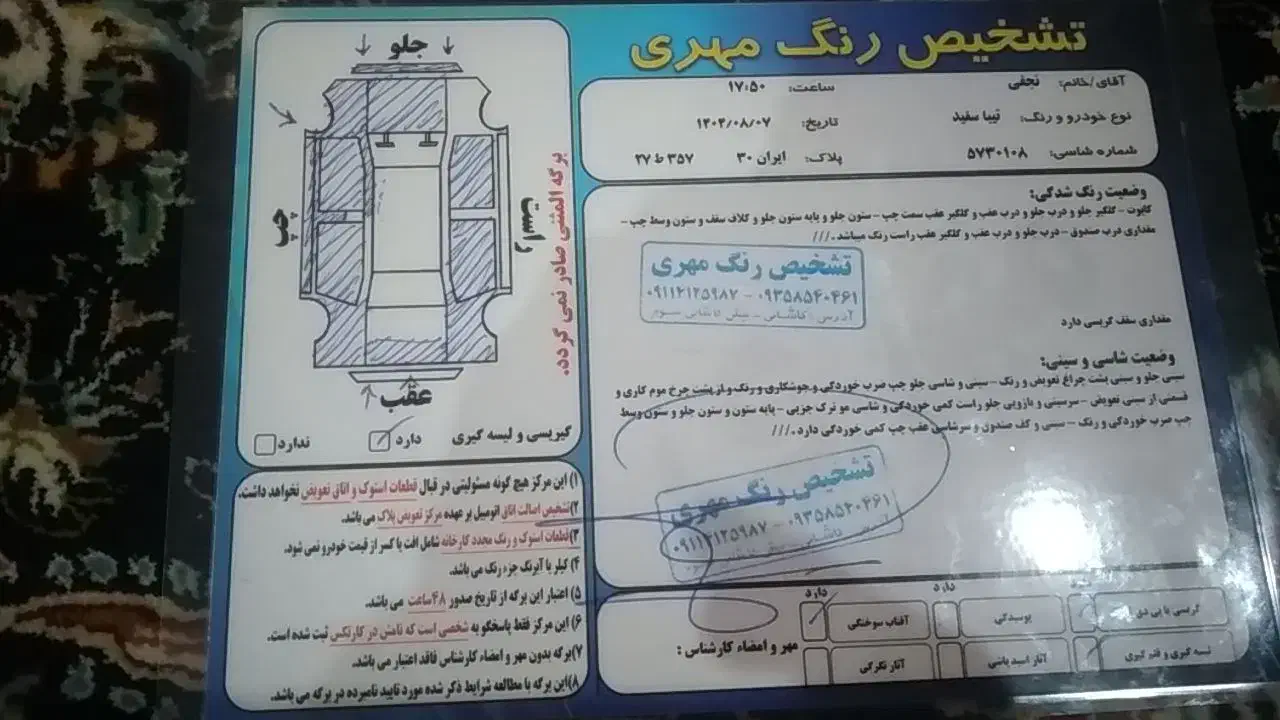 تشخیص رنگ مهری
آقای/خانم: نجفی
ساعت: ۱۷:۵۰
نوع خودرو و رنگ: تیبا سفید
تاریخ: ۱۴۰۴/۰۸/۰۷
شماره شاسی: ۵۷۳۰۱۰۸
پلاک: ایران ۳۰ ۳۵۷ ط ۲۷
وضعیت رنگ شدگی:
کاپوت - گلگیر جلو و درب جلو و درب عقب و گلگیر عقب سمت چپ - ستون جلو و پایه ستون جلو و کلاف سقف و ستون وسط چپ -
مقداری درب صندوق - درب جلو و درب عقب و گلگیر عقب راست رنگ میباشد .///
تشخیص رنگ مهری
۰۹۳۵۸۵۴۰۴۶۱ - ۰۹۱۱۲۱۲۵۹۸۷
آدرس: کاشانی -
مقداری سقف گریسی دارد
وضعیت شاسی و سینی:
سینی جلو و سینی پشت چراغ تعویض و رنگ - سینی و شاسی جلو چپ ضرب خوردگی و جوشکاری و رنگ و از پشت چرخ موم کاری و
قسمتی از سینی تعویض - سرسینی و بازویی جلو راست کمی خوردگی و شاسی مو ترک جزیی - پایه ستون و ستون جلو و ستون وسط
چپ ضرب خوردگی و رنگ - سینی و کف صندوق و سرشاسی عقب چپ کمی خوردگی دارد .///
تشخیص رنگ مهری
۰۹۳۵۸۵۴۰۴۶۱ - ۰۹۱۱۲۱۲۵۹۸۷
جلو
چپ
راست
عقب
برگه المثنی صادر نمی گردد.
گیریسی و لیسه گیری دارد ندارد
۱) این مرکز هیچ گونه مسئولیتی در قبال قطعات استوک و اتاق تعویض نخواهد داشت.
۲) تشخیص اصالت اتاق اتومبیل بر عهده مرکز تعویض پلاک می باشد.
۳) قطعات استوک و رنگ مجدد کارخانه شامل افت یا کسر از قیمت خودرو نمی شود.
۴) کیلر یا آبرنگ جزء رنگ می باشد.
۵) اعتبار این برگه از تاریخ صدور ۴۸ ساعت می باشد.
۶) این مرکز فقط پاسخگو به شخصی است که نامش در کارتکس ثبت شده است.
۷) برگه بدون مهر و امضاء کارشناس فاقد اعتبار می باشد.
۸) این برگه با مطالعه شرایط ذکر شده مورد تایید نامبرده در برگه می باشد.
دارد
دارد
آفتاب سوختگی
پوسیدگی
آثار تگرگی
آثار اسید پاشی
مهر و امضاء کارشناس :